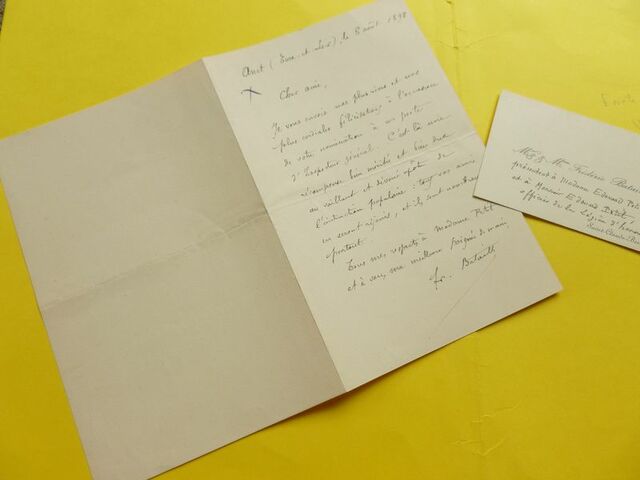 Anet (Eure-et-Loir), le 8 août 1898
Cher ami,
Je vous envoie mes plus vives et mes
plus cordiales félicitations à l'occasion
de votre nomination à un poste
d'Inspecteur général. C'est là une
récompense bien méritée et bien due
au vaillant et dévoué apôtre de
l'instruction populaire : tous vos amis
en seront réjouis, et ils sont nombreux
partout.
Tous mes respects à Madame Petit
et à vous, ma meilleure poignée de main,
Fr. Bataille
Mr & Mme Frédéric
présentent à Madame Edouard Petit
et à Monsieur Edouard Petit,
officier de la Légion d'honneur